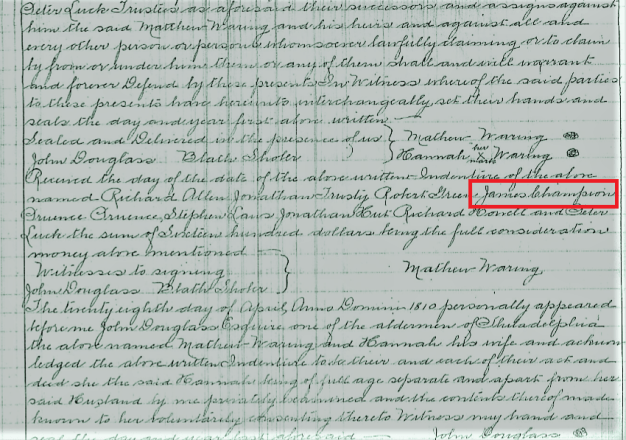 Peter Luck Trustees as aforesaid their successors and assigns against
him the said Matthew Waring and his heirs and against all and
every other person or persons whomsoever lawfully claiming or to claim
by from or under him them or any of them shall and will warrant
and forever Defend by these presents In Witness whereof the said parties
to these presents have hereunto interchangeably set their hands and
seals the day and year first above written —
Sealed and Delivered in the presence of us } Mathew Waring
John Douglass Blath Shober } Hannah her x mark Waring
Received the day of the date of the above written Indenture of the above
named Richard Allen Jonathan Trusty Robert Green James Champion
Pruence Cruence, Stephen Laws Jonathan Hut Richard Howell and Peter
Luck the sum of Sixteen hundred dollars being the full consideration
money above mentioned —
Witnesses to signing } Mathew Waring
John Douglass Blath Shober
The twenty eighth day of April Anno Domini 1810 personally appeared
before me John Douglass Esquire one of the aldermen of Philadelphia
the above named Mathew Waring and Hannah his wife and acknow
ledged the above written Indenture to be their and each of their act and
deed she the said Hannah being of full age separate and apart from her
said Husband by me privately examined and the contents thereof made
known to her voluntarily consenting thereto Witness my hand and
seal the day and year last aforesaid — John Douglass